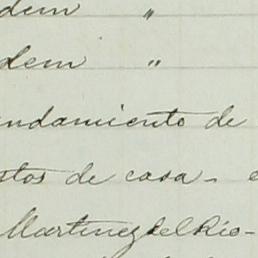 dem "
dem "
ndamiento de
stos de casa -
Martinez del Rio -